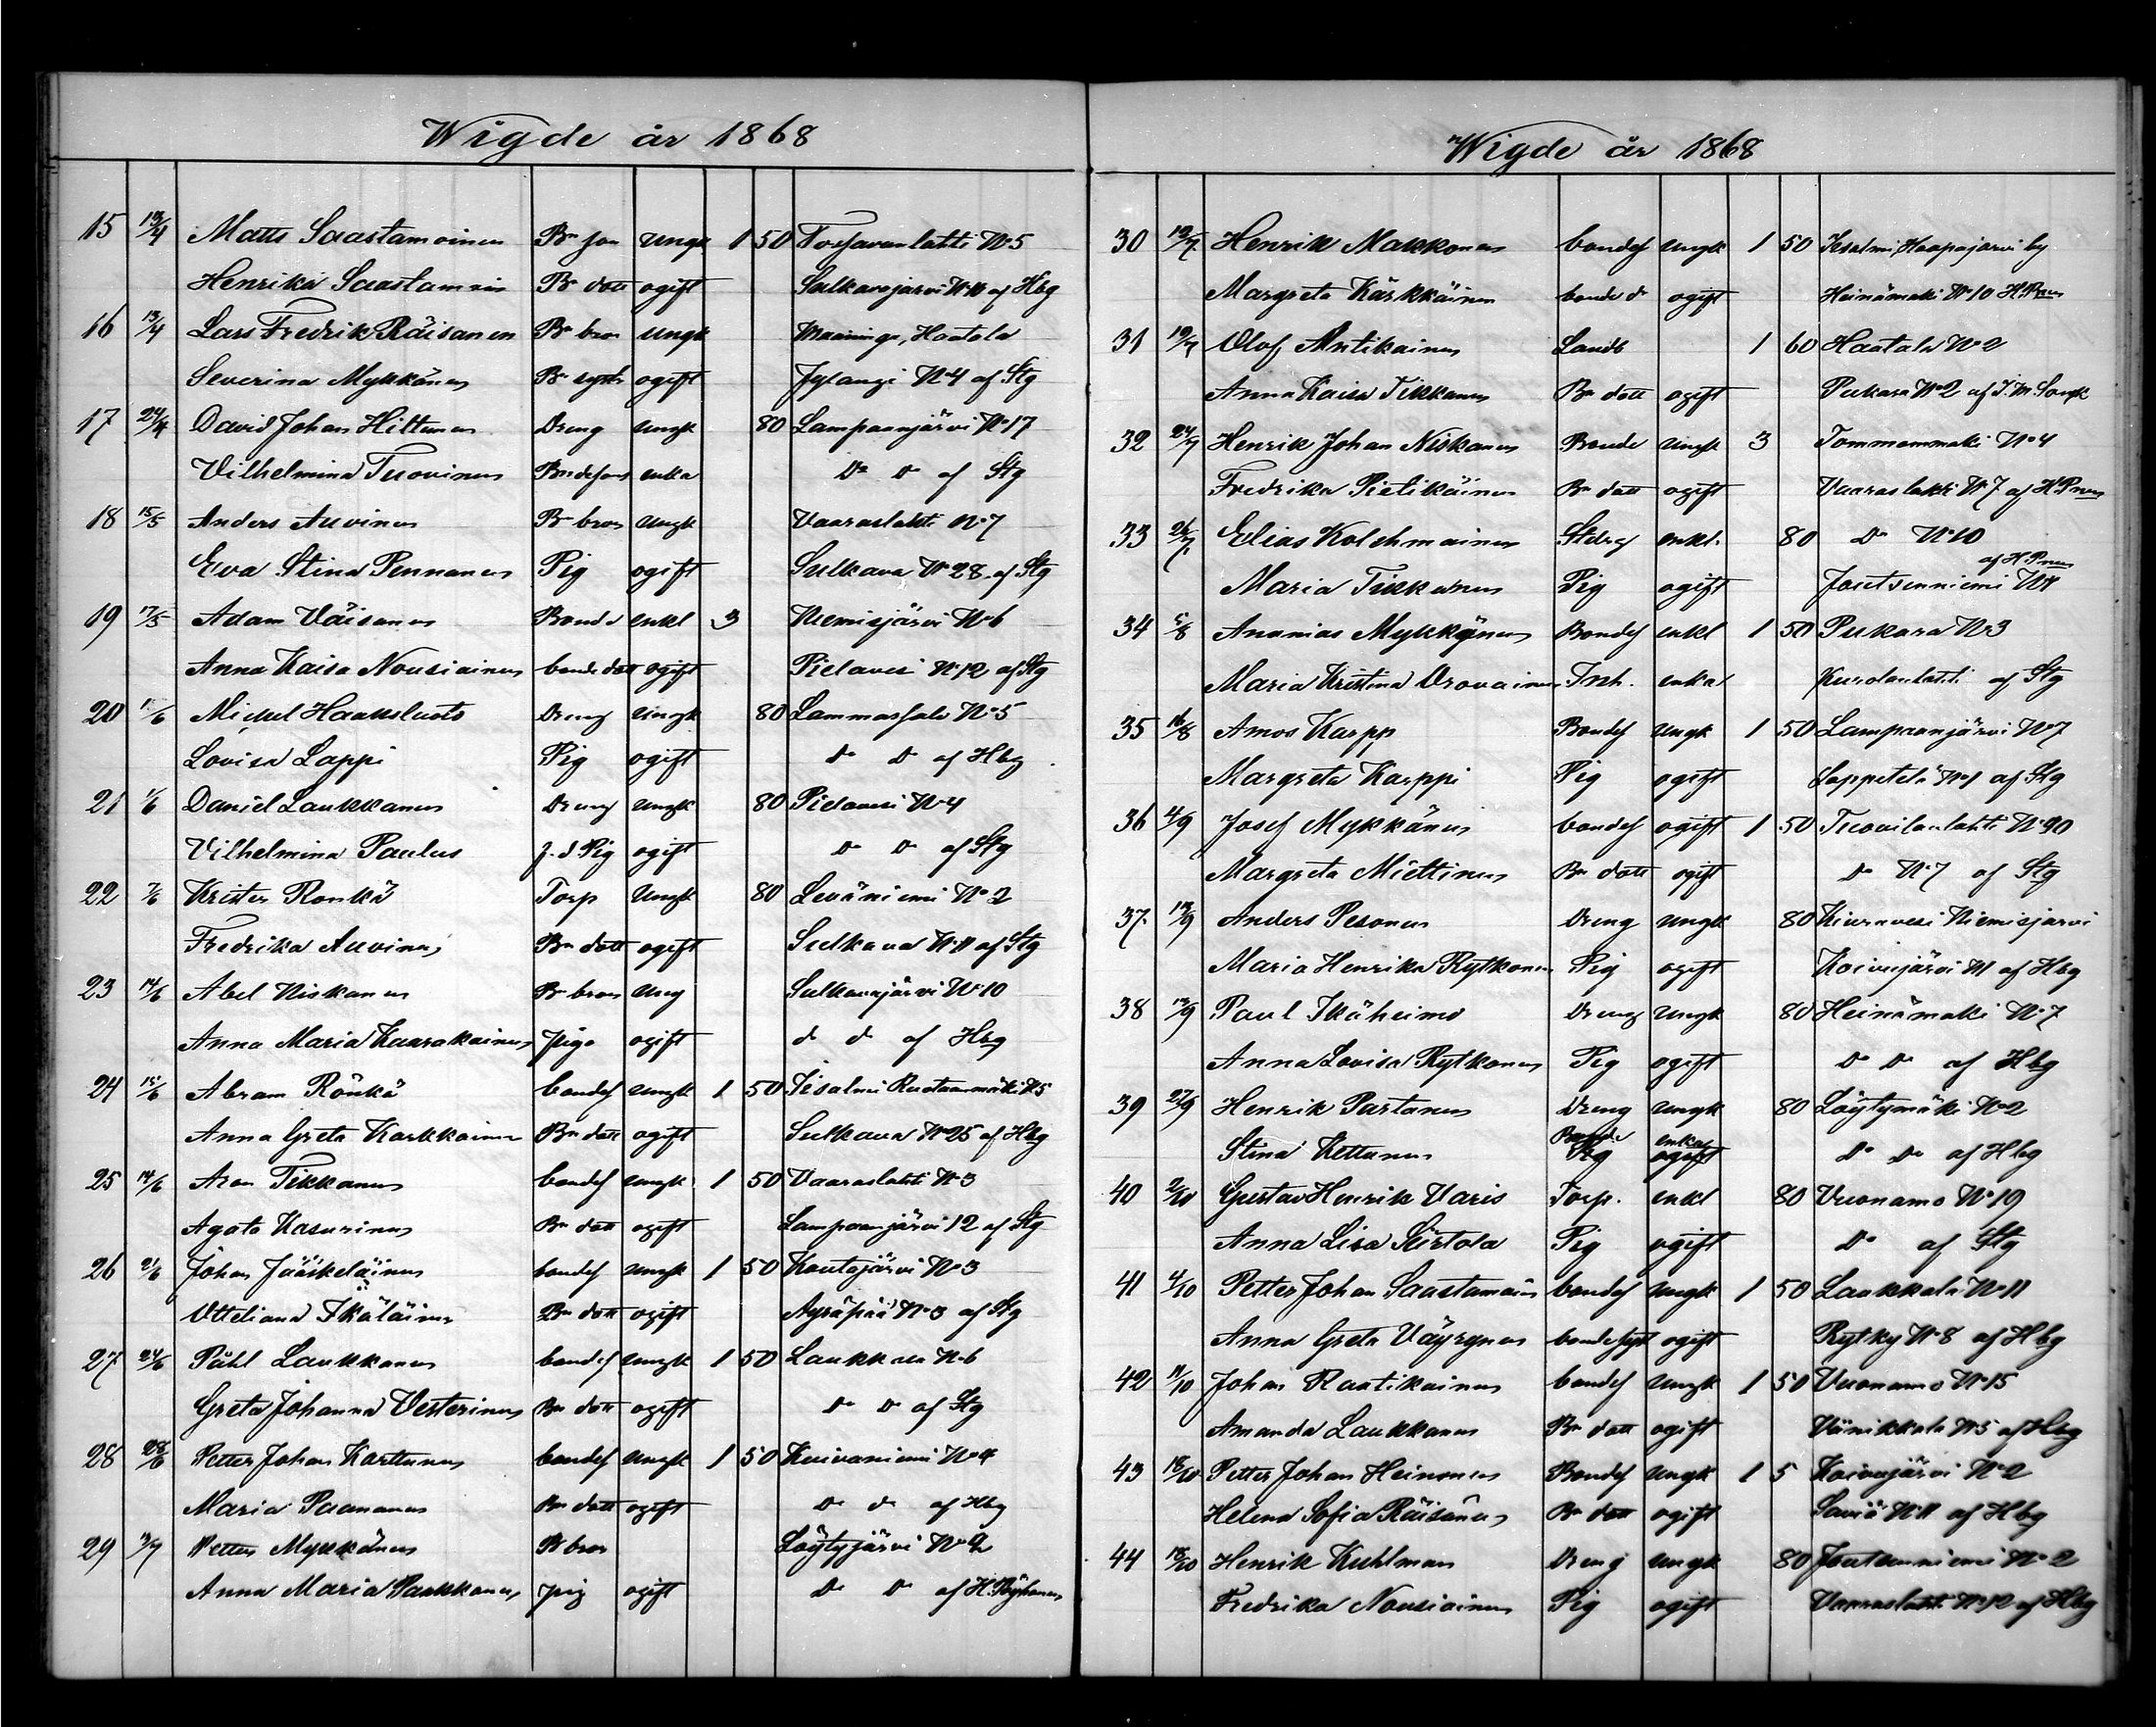 Wigde år 1868
15 13/4 Matts Saastamoinen Bn son ungk 1 50 Tossavanlahti No 5
Henrika Saastamoin Bn dott ogift Sulkavajärvi No 10 af Hbg
16 13/4 Lars Fredrik Räisänen Bn bror ungk Maaninga, Haatala
Severina Mykkänen Bn syst ogift Jylängi No 4 af Stg
17 24/4 David Johan Hiltunen Dreng ungk 80 Lampaanjärvi No 17
Vilhelmina Tuovinen enka Do Do af Stg
18 15/5 Anders Auvinen Bn bror ungk Vaaraslahti No 7
Eva Stina Pennanen Pig ogift Sulkava No 28 af Stg
19 17/5 Adam Väisänen Bonde enkl 3 Niemisjärvi No 6
Anna Kaisa Nousiainen bonde dott ogift Pielavesi No 12 af Stg
20 Mickel Haaksluoto Dreng ungk 80 Lammassalo No 5
Lovisa Lappi Pig ogift Do Do af Hbg
21 1/6 Daniel Laukkanen Dreng ungk 80 Pielavesi No 4
Vilhelmina Paulus f.d Pig ogift Do Do af Stg
22 7/6 Krister Ronkä Torp ungk 80 Leväniemi No 2
Fredrika Auvinen Bn dott ogift Sulkava No 11 af Stg
23 14/6 Abel Niskanen Bn bror ung Sulkavajärvi No 10
Anna Maria Kaarakainen piga ogift do do af Hbg
24 15/6 Abram Rönkä bondes ungk 1 50 Iisalmi Ruotaanmäki No 5
Anna Greta Karkkainen Bn dott ogift Sulkava No 25 af Hbg
25 14/6 Aron Tikkanen bondes ungk 1 50 Vaaraslahti No 3
Agata Kasurinen Bn dott ogift Lampaanjärvi 12 af Stg
26 21/6 Johan Jääskeläinen bondes ungk 1 50 Koutajärvi No 3
Otteliana Ikäläinen Bn dott ogift Äyräpää No 3 af Stg
27 24/6 Påhl Laukkanen bondes ungk 1 50 Laukkala No 6
Greta Johanna Vesterinen Bn dott ogift Do Do af Stg
28 28/6 Petter Johan Karttunen bondes ungk 1 50 Kuivaniemi No 4
Maria Paananen Bn dott ogift Do do af Hbg
29 Petter Mykkänen Bn bror Löytyjärvi No 2
Anna Maria Paukkonen pig ogift Do Do af H. Pöyhönen
Wigde år 1868
30 12/7 Henrik Makkonen bondes ungk 1 50 Iisalmi, Haapajärvi by
Margreta Kärkkäinen bonde d ogift Heinämäki No 10 H. Pnen
31 19/7 Olof Antikainen Landb 1 60 Haatala No 2
Anna Kaisa Tikkanen Bn dott ogift Pukara No 2 af
32 24/7 Henrik Johan Niskanen Bonde ungk 3 Tommonmäki No 4
Fredrika Pietikäinen Bn dott ogift Vaaraslahti No 7 af H. Pnen
33 26/7 Elias Kolehmainen enkl. 80 Do No 10
af H. Pnen
Maria Tikkanen Pig ogift Joutsenniemi No 1
34 5/8 Ananias Mykkänen Bondes enkl 1 50 Pukara No 3
Maria Kristina Orovainen Inh. enka Kurolanlahti af Stg
35 16/8 Amos Karpp Bondes ungk 1 50 Lampaanjärvi No 7
Margreta Karppi Pig ogift Lappetelä No 1 af Stg
36 4/9 Josef Mykkänen bondes ogift 1 50 Tuovilanlahti No 90
Margreta Miettinen Bn dott ogift Do No 7 af Stg
37. 13/9 Anders Pesonen Dreng ungk 80 Kiuruvesi Niemisjärvi
Maria Henrika Rytkonen Pig ogift Koivujärvi No 1 af Hbg
38 13/9 Paul Ikäheimo Dreng ungk 80 Heinämäki No 7
Anna Lovisa Rytkonen Pig ogift Do Do af Hbg
39 27/9 Henrik Partanen Dreng ungk 80 Löytymäki No 2
Stina Kettunen enka ogift Do Do af Hbg
40 2/10 Gustav Henrik Varis Torp. enkl 80 Vuonamo No 19
Anna Lisa Siirtola Pig ogift Do af Stg
41 4/10 Petter Johan Saastamoin bondes ungk 1 50 Laukkala No 11
Anna Greta Väyrynen bondesyst ogift Rytky No 8 af Hbg
42 11/10 Johan Rautikainen bondes ungk 1 50 Vuonamo No 15
Amanda Laukkanen Bn dott ogift Vänikkälä No 5 af Hbg
43 18/10 Petter Johan Heinonen Bondes ungk 1 5 Koivujärvi No 2
Helena Sofia Räisänen Bn dott ogift Saviä No 11 af Hbg
44 18/10 Henrik Kuhlman Dreng ungk 80 Joutsenniemi No 2
Fredrika Nousiainen Pig ogift Vaaraslahti No 12 af Hbg